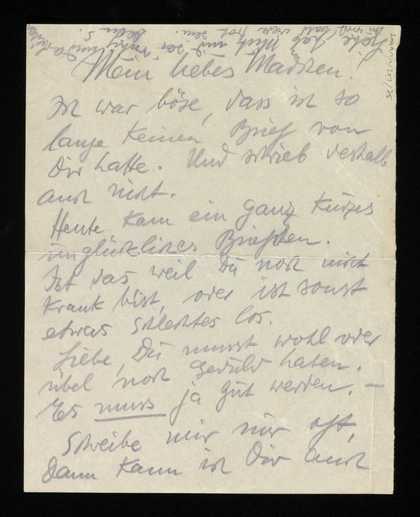 Mein liebes Mädchen.
Ich war böse, dass ich so
lange keinen Brief von
Dir hatte. Und schrieb deshalb
auch nicht.
Heute kam ein ganz kurzes
unglückliches Briefchen.
Ist das weil Du noch nicht
krank bist, oder ist sonst
etwas schlechtes los.
Liebe, Du musst wohl oder
übel noch Geduld haben.
Es muss ja gut werden. –
Schreibe mir nur oft,
Dann kann ich Dir auch